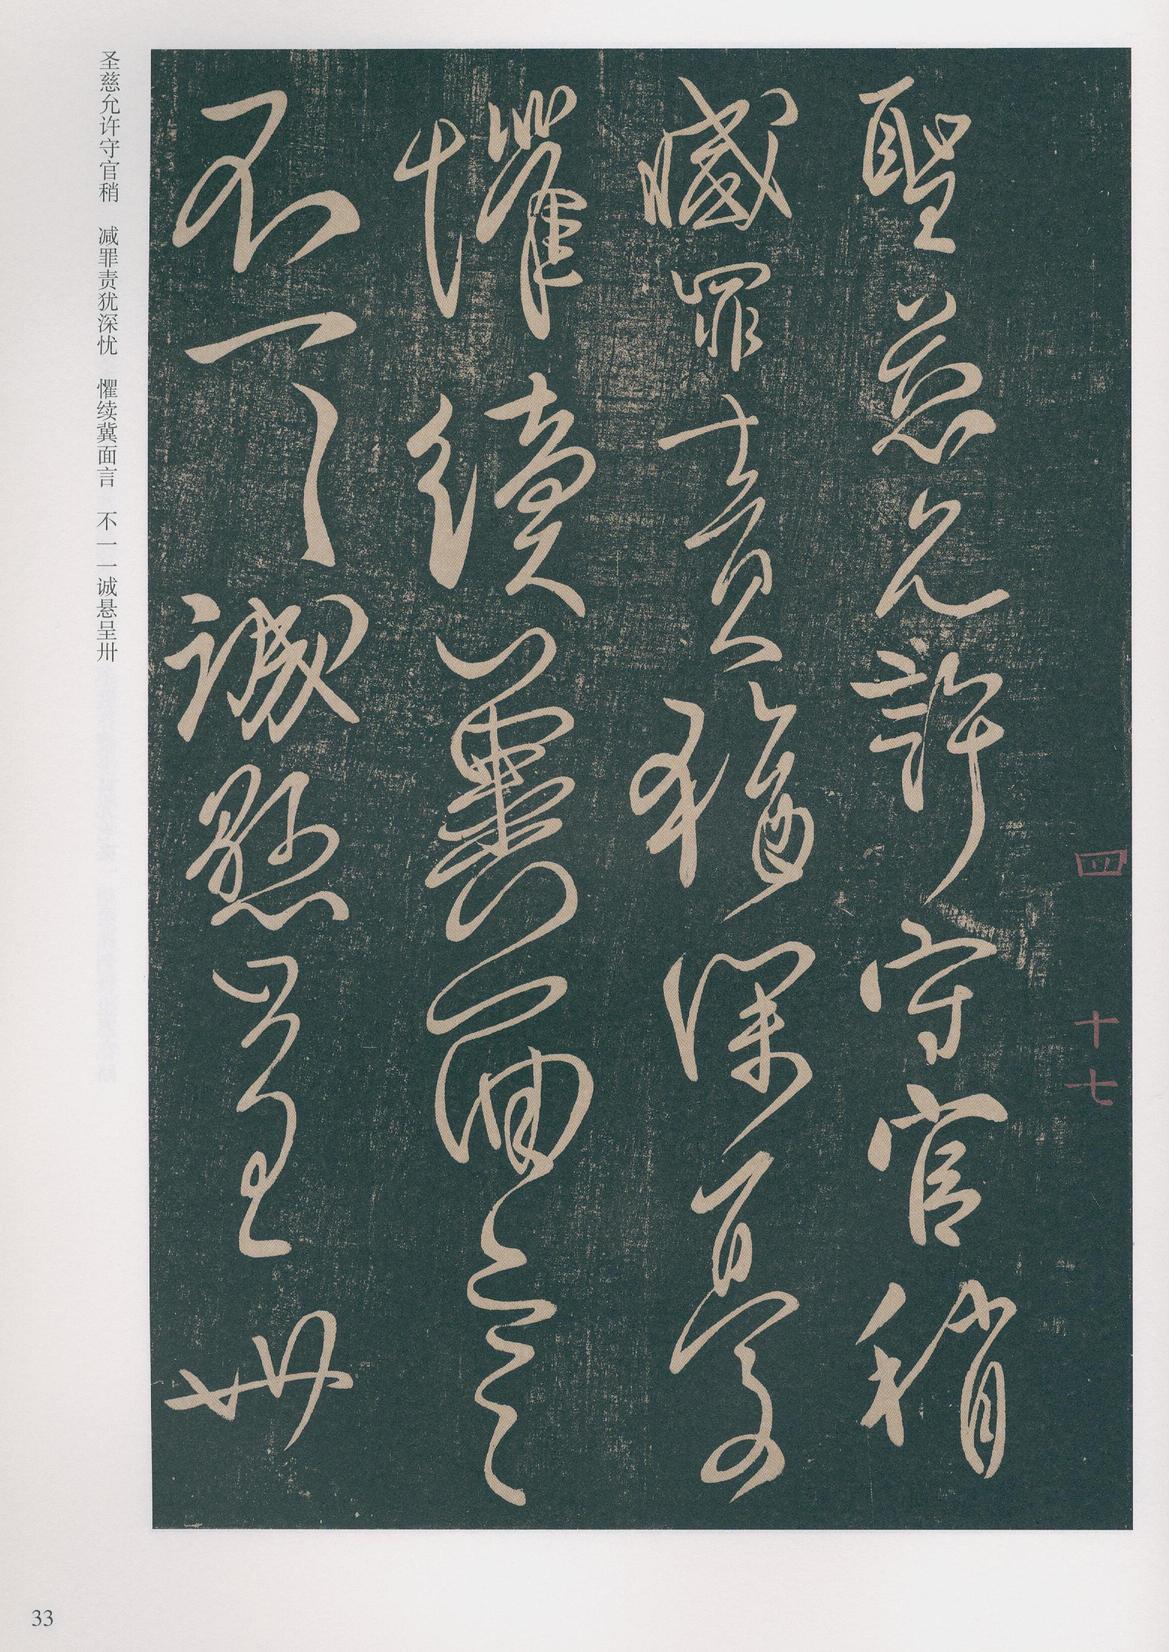 聖慈允許守官稍
減罪責猶深憂
懼續冀面言
不一一誠懸呈卌
四 十七
圣慈允许守官稍 减罪责犹深忧 懼续冀面言 不一一诚悬呈卅
33